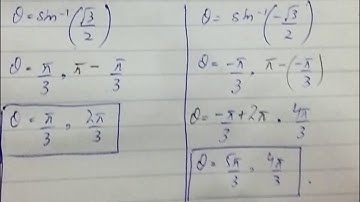 θ = sin⁻¹(√3/2)
θ = π/3 , π − π/3
θ = π/3 , 2π/3
θ = sin⁻¹(−√3/2)
θ = −π/3 , π−(−π/3)
θ = −π/3 + 2π , 4π/3
θ = 5π/3 , 4π/3 .